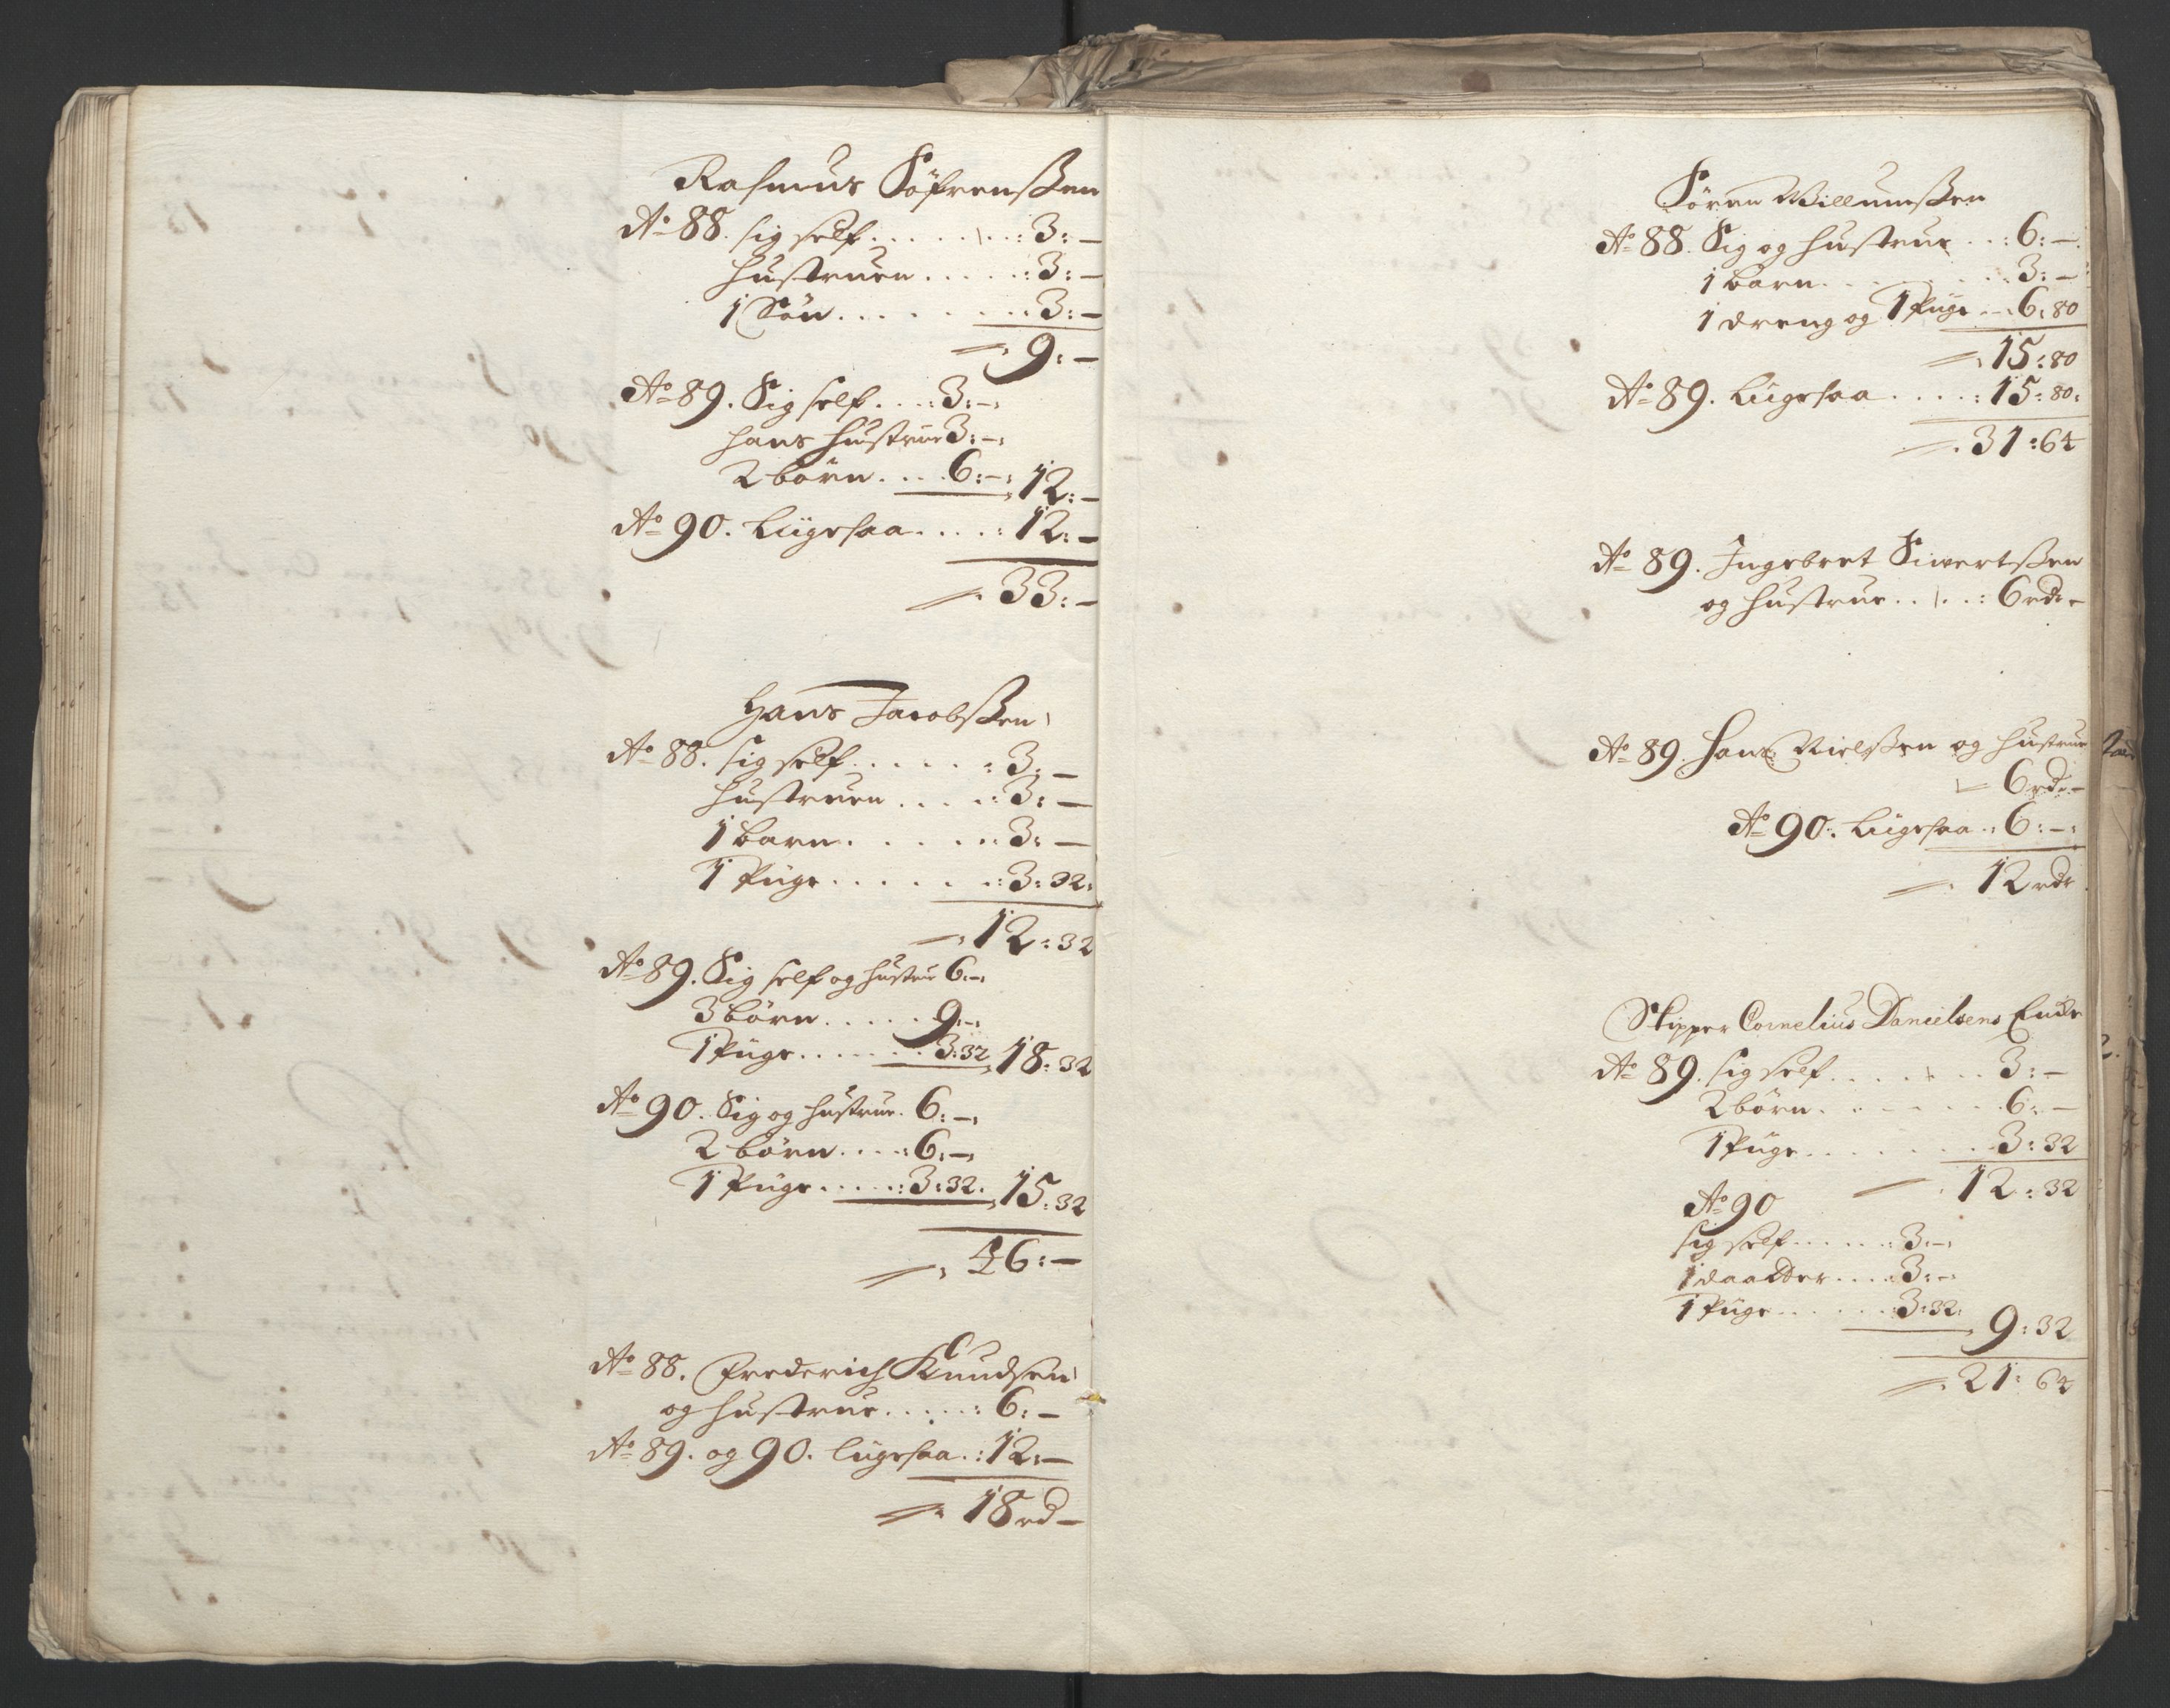 Rasmus Söfrenßen
Ao 88. sig self . . . . . : 3: —
hustruen . . . . . : 3: —
1 Sön . . . . . . . . 3: —
9: —
Ao 89. Sig self . . . : 3: —
hans hustrue 3: —
2 börn . . . . 6: — 12: —
Ao 90. Liigesaa . . . . : 12: —
33: —
Hans Jacobßen
Ao 88. sig self . . . . . : 3: —
hustruen . . . . : 3: —
1 barn . . . . . . : 3: —
1 Piige . . . . . . : 3: 32:
12: 32
Ao 89. Sig self og hustrue 6: —
3 börn . . . . . 9: —
1 Piige . . . . . . 3: 32 18: 32
Ao 90. Sig og hustrue. 6: —
2 börn . . . . : 6: —
1 Piige . . . . . : 3: 32. 15: 32
46: —
Ao 88. Frederich Knudsen
og hustrue . . . . . : 6: —
Ao 89. og 90. liigesaa . : 12: —
18 rd —
Sören Willumßen
Ao 88. Sig og hustrue . . : 6: —
1 barn . . . . . . . 3: —
1 dreng og 1 Piige . . . 6: 80
15: 80
Ao 89. Liigesaa . . . . : 15: 80:
31: 64
Ao 89. Ingebret Siwertßen
og hustrue . . . . : 6 rdr —
Ao 89. Hans Nielßen og hustrue
6 rdr —
Ao 90. Liigesaa . : 6: —
12 rdr
Skipper Cornelius Danielsens Encke
Ao 89. sig self . . . . . . . 3: —
2 börn . . . . . . . 6: —
1 Piige . . . . . . . . 3: 32
12: 32
Ao 90
sig self . . . . . : 3: —
1 daatter . . . . 3: —
1 Piige . . . . . . 3: 32: 9: 32
21: 64